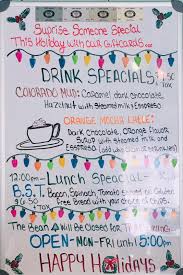 Suprise Someone Special
This Holiday with our Giftcards...
DRINK SPEACIALS $ .50
+TAX
COLORADO MUD: Caramel, dark chocolate,
Hazelnut with Steamed milk & Espresso
ORANGE MOCHA LATTE:
Dark Chocolate, Orange Flavor
Syrup with steamed milk
and Espresso
12:00pm- Lunch Special-
B.S.T. Bacon, Spinach, Tomato Served on Gluten
$6.50 +Tax Free Bread with your choice of Chips
The Bean Will Be Closed for
OPEN-MON-FRI until 5:00pm
HAPPY HOLIDAYS